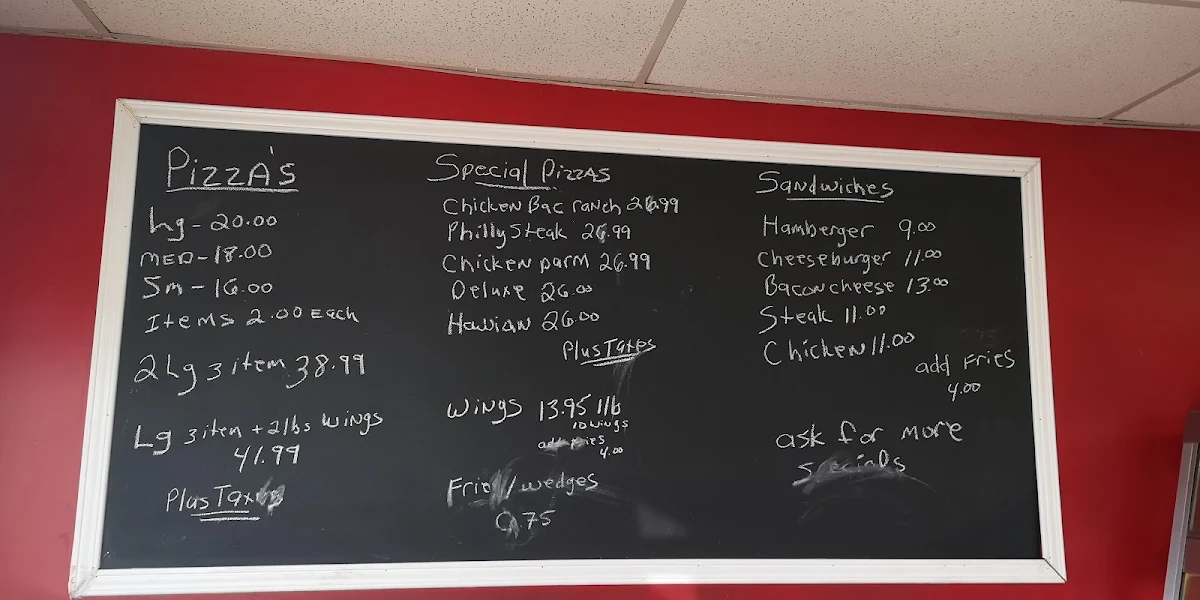 PizzA's
Lg - 20.00
MED - 18.00
Sm - 16.00
Items 2.00 Each
2 Lg 3 item 38.99
Lg 3 item + 2 lbs wings
41.99
Plus Taxes
Special PizzAs
Chicken Bac ranch 26.99
Philly Steak 26.99
Chicken parm 26.99
Deluxe 26.00
Hawian 26.00
Plus Taxes
Wings 13.95 1lb
10 wings
add fries
4.00
Fries/wedges
.75
Sandwiches
Hamberger 9.00
Cheeseburger 11.00
Bacon cheese 13.00
Steak 11.00
Chicken 11.00
add Fries
4.00
ask for more
specials